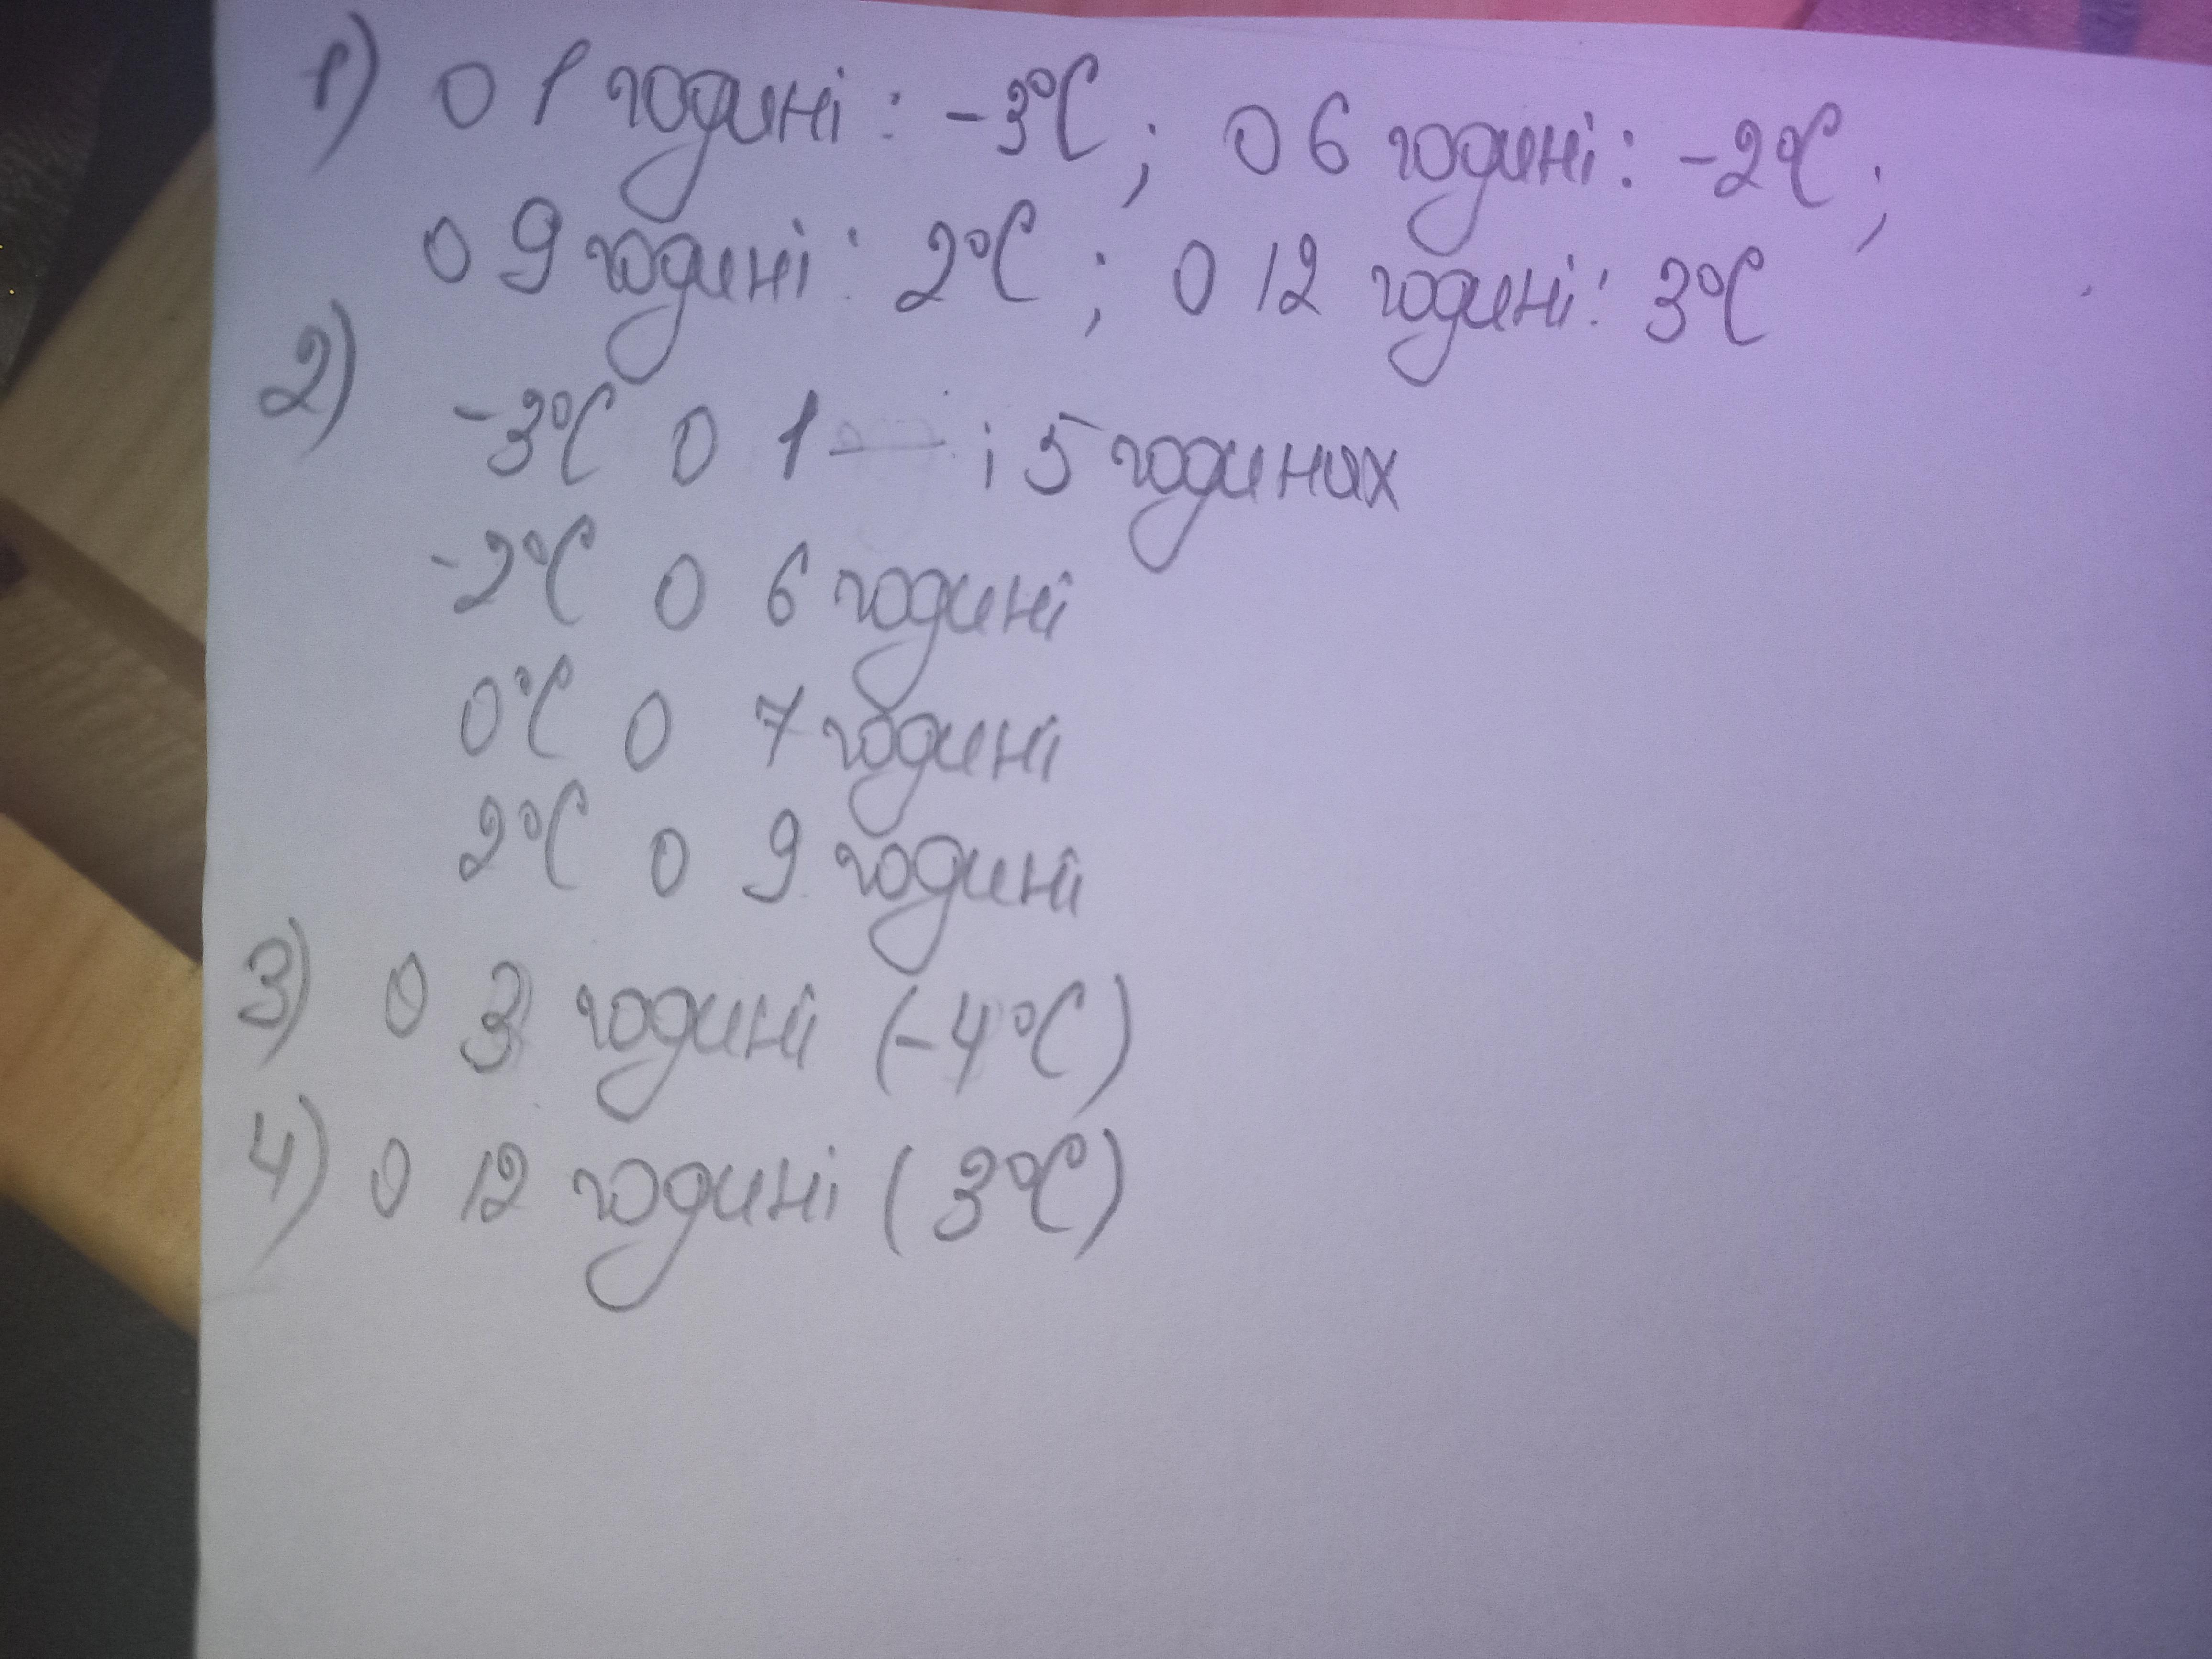 1) О 1 годині: -3°С; О 6 годині: -2°С;
О 9 годині: 2°С; О 12 годині: 3°С
2)
-3°С О 1 і 5 годинах
-2°С О 6 годині
0°С О 7 годині
2°С О 9 годині
3) О 3 годині (-4°С)
4) О 12 годині (3°С)